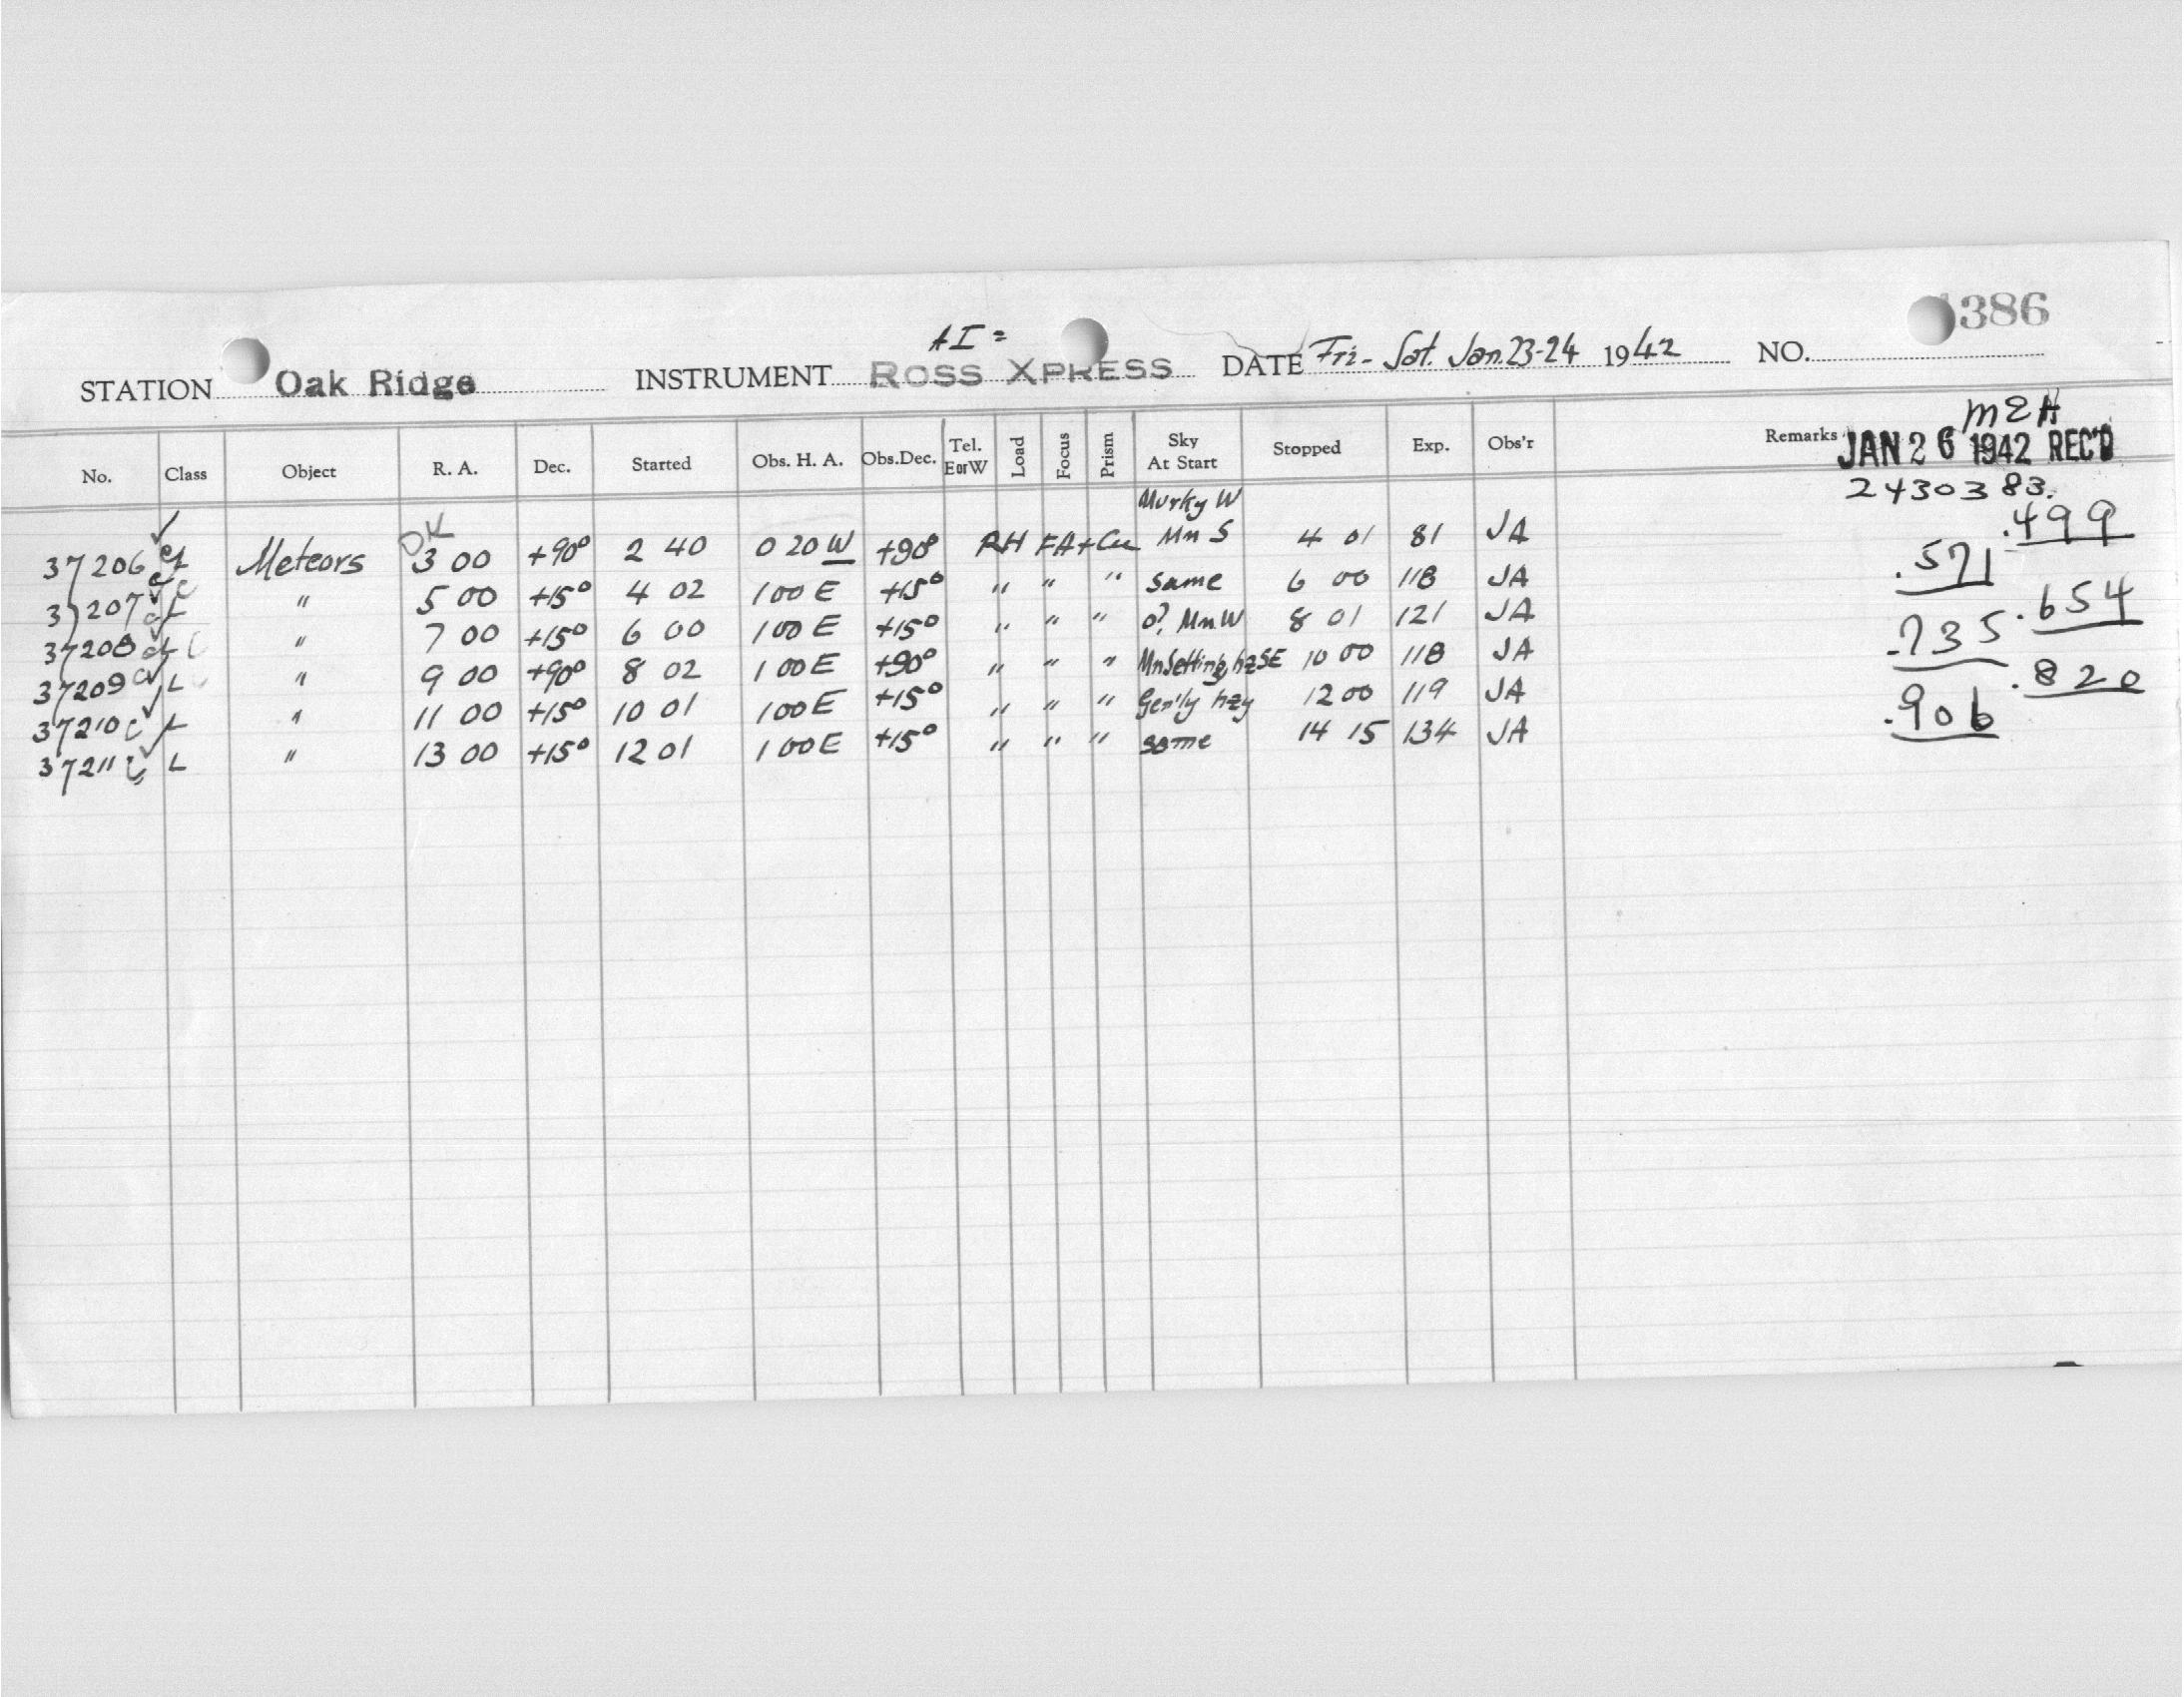 386
AI =
STATION Oak Ridge INSTRUMENT ROSS XPRESS DATE Fri- Sat. Jan. 23-24 1942 NO.
MEH
No. Class Object R. A. Dec. Started Obs. H. A. Obs.Dec. Tel. E or W Load Focus Prism Sky At Start Stopped Exp. Obs'r Remarks
JAN 26 1942 REC'D
2430383.
Murky W
OK
37206 Meteors 3 00 +90° 2 40 0 20 W +90° RH FA + Cu Mn S 4 01 81 JA .499
37207 " 5 00 +15° 4 02 1 00 E +15° " " " same 6 00 118 JA .571
37208 " 7 00 +15° 6 00 1 00 E +15° " " " o?, Mn W 8 01 121 JA .654
37209 L " 9 00 +90° 8 02 1 00 E +90° " " " Mn Setting, hz SE 10 00 118 JA .735
37210 L " 11 00 +15° 10 01 1 00 E +15° " " " Gen'ly hzy 12 00 119 JA .820
37211 L " 13 00 +15° 12 01 1 00 E +15° " " " same 14 15 134 JA .906